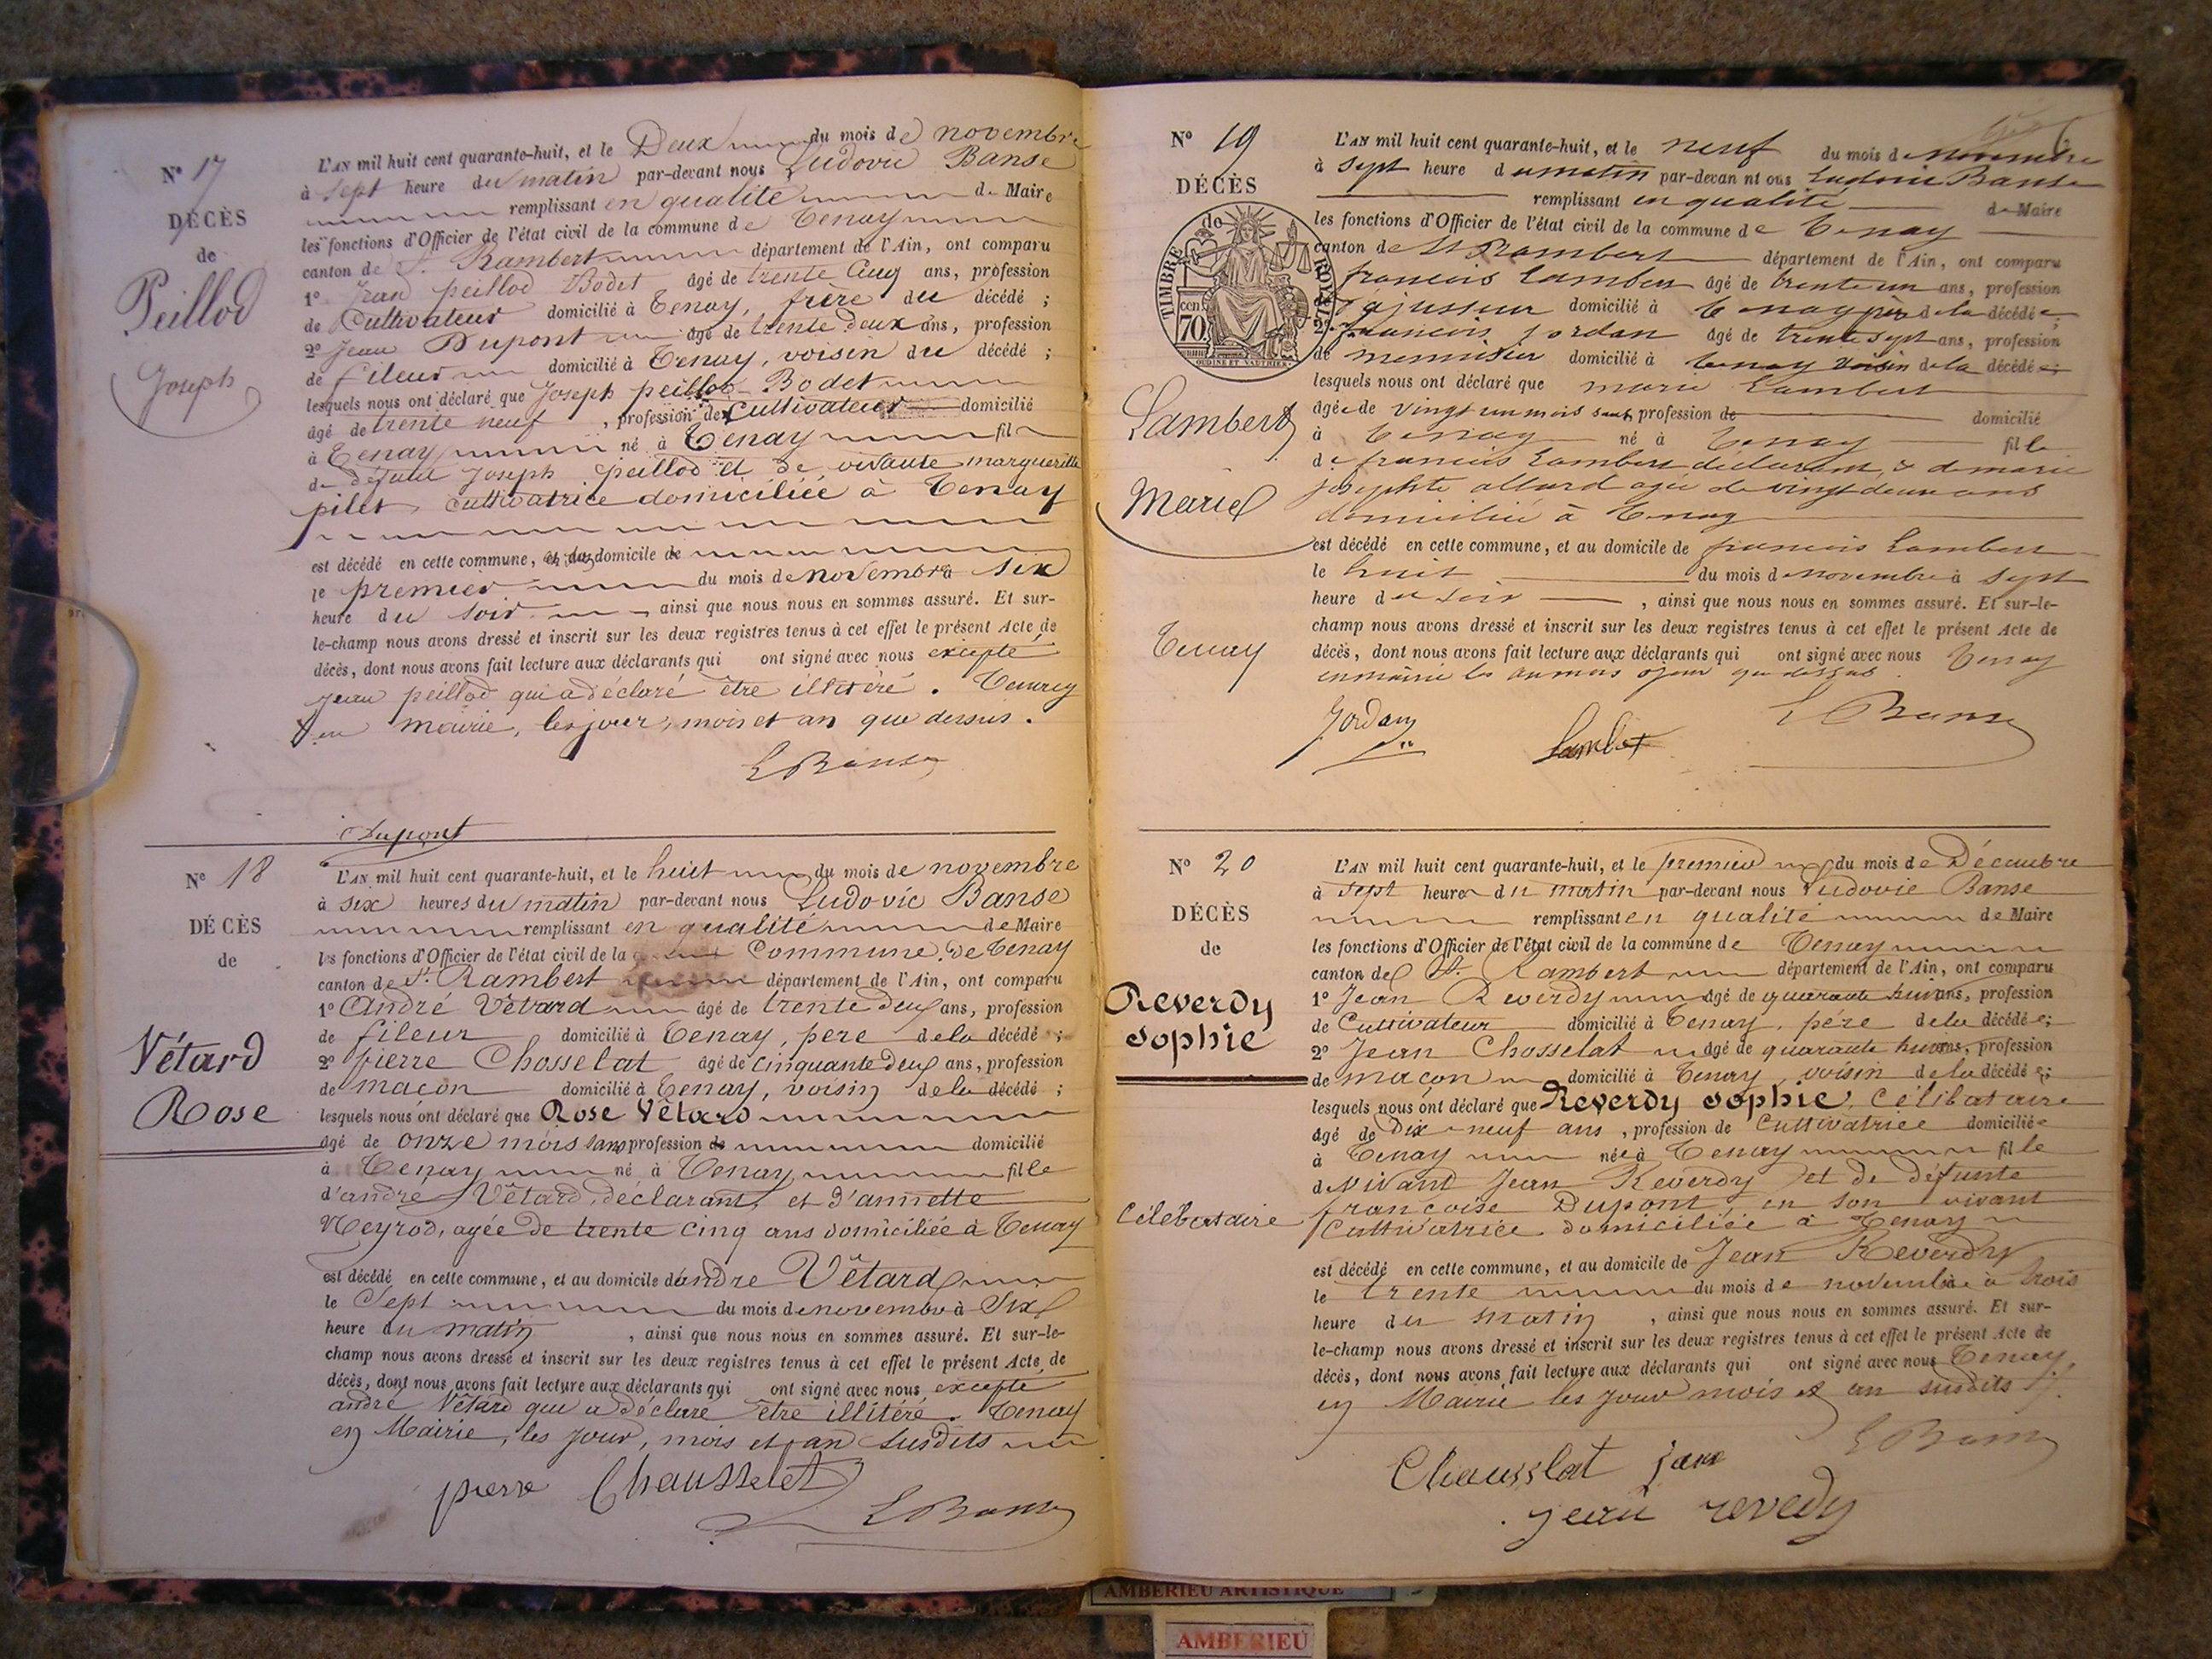 N° 17
DÉCÈS
de
Peillod
Joseph
L'AN mil huit cent quarante-huit, et le Deux du mois de novembre
à sept heure du matin par-devant nous Ludovic Banse
remplissant en qualité de Maire
les fonctions d'Officier de l'état civil de la commune de Tenay
canton de St Rambert département de l'Ain, ont comparu
1° Jean peillod Bodet âgé de trente cinq ans, profession
de Cultivateur domicilié à Tenay, frère du décédé ;
2° Jean Dupont âgé de trente deux ans, profession
de fileur domicilié à Tenay, voisin du décédé ;
lesquels nous ont déclaré que Joseph peillod Bodet
âgé de trente neuf , profession de Cultivateur domicilié
à Tenay né à Tenay fil
de défunt Joseph peillod et de vivante margueritte
pilet cultivatrice domiciliée à Tenay
est décédé en cette commune, domicile de
le premier du mois de novembre à six
heure du soir ainsi que nous nous en sommes assuré. Et sur-
le-champ nous avons dressé et inscrit sur les deux registres tenus à cet effet le présent Acte de
décès, dont nous avons fait lecture aux déclarants qui ont signé avec nous excepté
jean peillod qui a déclaré être illitéré. Tenay
en mairie, les jour, mois et an que dessus.
L Banse
Dupont
N° 18
DÉCÈS
de
Vétard
Rose
L'AN mil huit cent quarante-huit, et le huit du mois de novembre
à six heures du matin par-devant nous Ludovic Banse
remplissant en qualité de Maire
les fonctions d'Officier de l'état civil de la Commune de Tenay
canton de St Rambert département de l'Ain, ont comparu
1° André Vétard âgé de trente deux ans, profession
de fileur domicilié à Tenay, pere de la décédé ;
2° pierre Chosselat âgé de cinquante deux ans, profession
de maçon domicilié à Tenay, voisin de la décédé ;
lesquels nous ont déclaré que Rose Vêtard
âgé de onze mois sans profession de domicilié
à Tenay né à Tenay fille
d'andré Vêtard, déclarant, et d'annette
Neyrod, agée de trente cinq ans domiciliée à Tenay
est décédé en cette commune, et au domicile d'andre Vêtard
le Sept du mois de novembre à Six
heure du matin , ainsi que nous nous en sommes assuré. Et sur-le-
champ nous avons dressé et inscrit sur les deux registres tenus à cet effet le présent Acte de
décès, dont nous avons fait lecture aux déclarants qui ont signé avec nous excepté
andré Vêtard qui a déclaré etre illitéré. Tenay
en Mairie, les jour, mois et an susdits
pierre Chausselet
L Banse
N° 19
DÉCÈS
de
TIMBRE ROYAL
70 cen
OUDINÉ ET VAUTHIER
Lambert
Marie
Tenay
L'AN mil huit cent quarante-huit, et le neuf du mois de novembre
à sept heure du matin par-devan nt ous Ludovic Banse
remplissant en qualité de Maire
les fonctions d'Officier de l'état civil de la commune de Tenay
canton de St Rambert département de l'Ain, ont comparu
francois Lambert âgé de trente un ans, profession
d'ajusteur domicilié à Tenay père de la décédée ;
2° francois jordan âgé de trente sept ans, profession
de menuisier domicilié à Tenay voisin de la décédée ;
lesquels nous ont déclaré que marie Lambert
âgée de vingt un mois sans profession de domicilié
à Tenay né à Tenay fille
de francois Lambert déclarant, & de marie
josephte allard agée de vingt deux ans
domiciliée à Tenay
est décédé en cette commune, et au domicile de francois Lambert
le huit du mois de novembre à sept
heure du soir , ainsi que nous nous en sommes assuré. Et sur-le-
champ nous avons dressé et inscrit sur les deux registres tenus à cet effet le présent Acte de
décès, dont nous avons fait lecture aux déclarants qui ont signé avec nous Tenay
en mairie les an mois & jour que dessus
Jordan
Lambert
L Banse
N° 20
DÉCÈS
de
Reverdy
sophie
Célebataire
L'AN mil huit cent quarante-huit, et le premier du mois de Décembre
à sept heure du matin par-devant nous Ludovic Banse
remplissant en qualité de Maire
les fonctions d'Officier de l'état civil de la commune de Tenay
canton de St. Rambert département de l'Ain, ont comparu
1° Jean Reverdy âgé de quarante huit ans, profession
de Cultivateur domicilié à Tenay, pére de la décédée ;
2° Jean Chosselat âgé de quarante huit ans, profession
de maçon domicilié à Tenay voisin de la décédée ;
lesquels nous ont déclaré que Reverdy sophie, célibataire
âgé de Dix-neuf ans , profession de Cultivatrice domiciliée
à Tenay née à Tenay fille
de vivant Jean Reverdy et de défunte
francoise Dupont en son vivant
Cultivatrice domiciliée à Tenay
est décédé en cette commune, et au domicile de Jean Reverdy
le trente du mois de novembre à trois
heure du matin , ainsi que nous nous en sommes assuré. Et sur-
le-champ nous avons dressé et inscrit sur les deux registres tenus à cet effet le présent Acte de
décès, dont nous avons fait lecture aux déclarants qui ont signé avec nous Tenay,
en Mairie les jour mois et an susdits
L Banse
Chausslat jean
jean revedy
AMBERIEU ARTISTIQUE
AMBERIEU